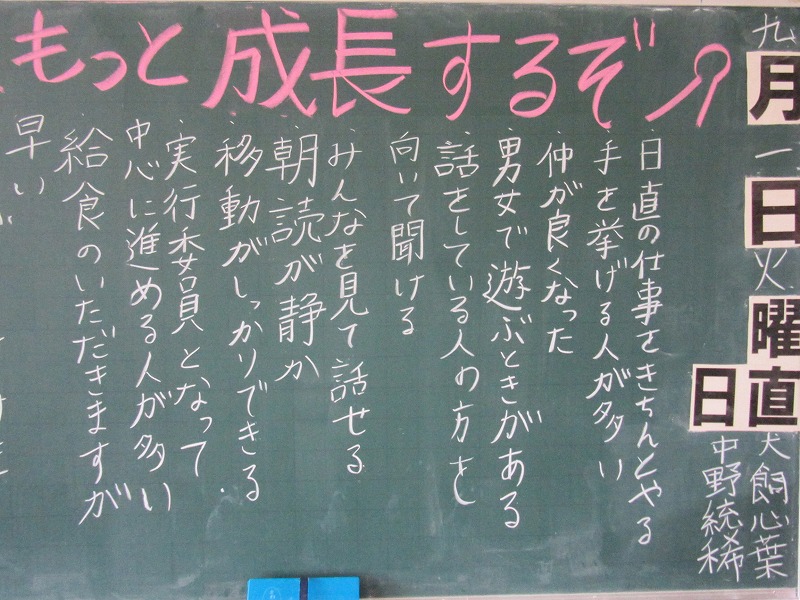 もっと成長するぞ
九月一日火曜日
日直
犬飼心葉
中野統稀
・日直の仕事をきちんとやる
・手を挙げる人が多い
・仲が良くなった
・男女で遊ぶときがある
・話をしている人の方を
向いて聞ける
・みんなを見て話せる
・朝読が静か
・移動がしっかりできる
・実行委員となって
中心に進める人が多い
・給食のいただきますが
早い